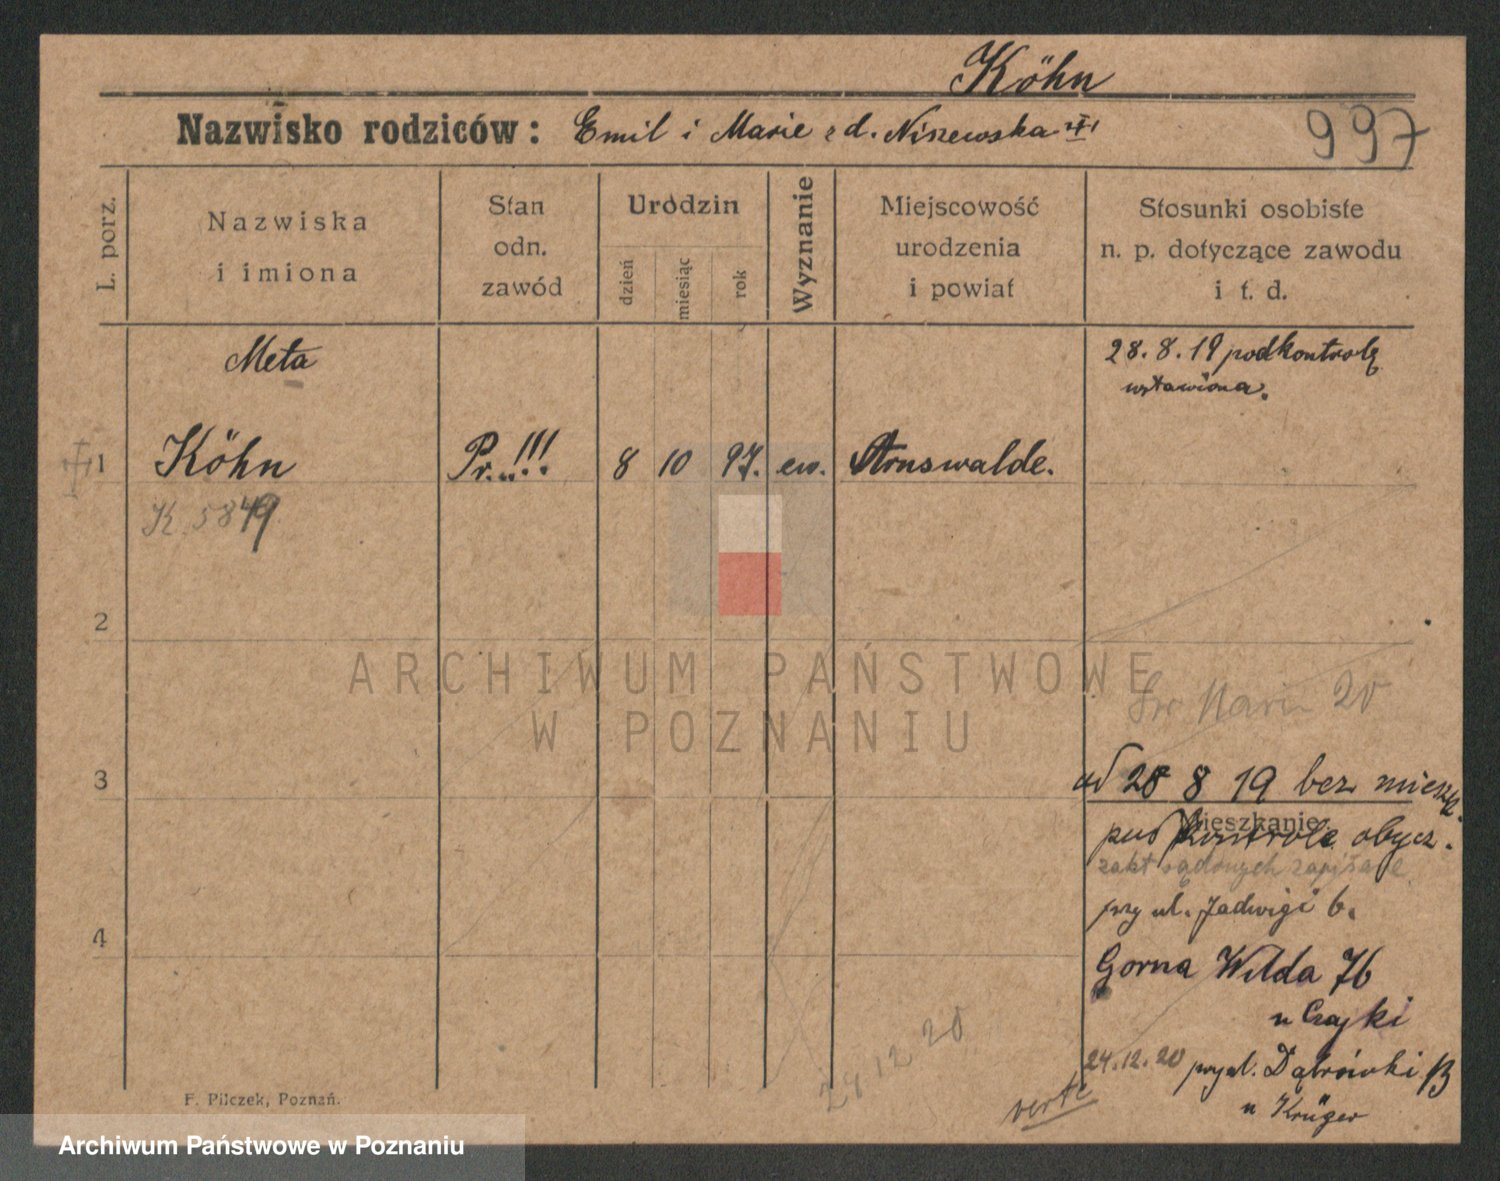 Köhn
Nazwisko rodziców: Emil i Marie z d. Niszewska
997
L. porz.
Nazwiska
i imiona
Stan
odn.
zawód
Urodzin
dzień
miesiąc
rok
Wyznanie
Miejscowość
urodzenia
i powiat
Stosunki osobiste
n. p. dotyczące zawodu
i t. d.
Meta
28. 8. 19 pod kontrolę
wstawiona.
1 Köhn Pr...!!! 8 10 97. ew. Arnswalde.
K. 5849
2
ARCHIWUM PAŃSTWOWE
W POZNANIU
Św Marcin 20
3
od 28 8 19 bez mieszk.
Mieszkanie
pod kontrole obycz.
przy ul. Jadwigi 6.
4
Gorna Wilda 76
u Czajki
24 12 20
24.12.20 przy ul. Dąbrówki
u Krüger
verte
F. Pilczek, Poznań.
Archiwum Państwowe w Poznaniu